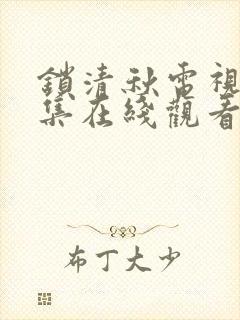 鎖清秋電視
集在綫觀看
布丁大少